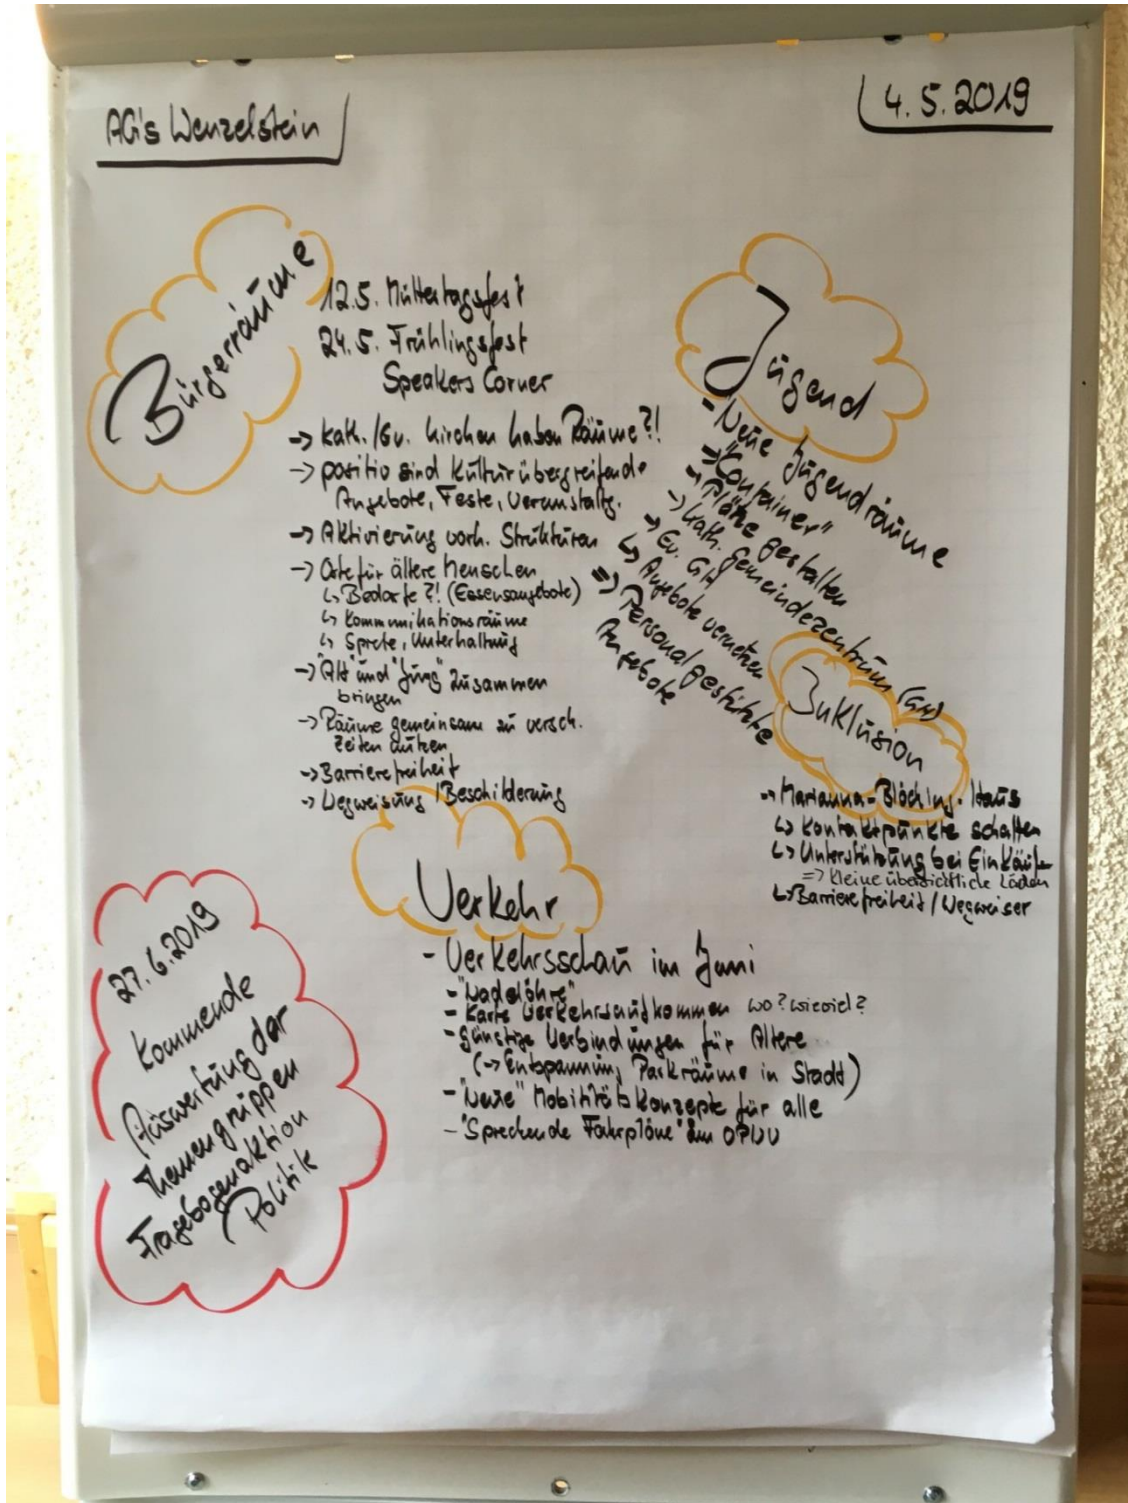 AG's Wenzelstein
4.5.2019
Bürgerräume
12.5. Muttertagsfest
24.5. Frühlingsfest
Speakers Corner
-> kath./Ev. Kirchen haben Räume?!
-> positiv sind Kulturübergreifende
Angebote, Feste, Veranstaltg.
-> Aktivierung vorh. Strukturen
-> Orte für ältere Menschen
↳ Bedarfe?! (Essensangebote)
↳ Kommunikationsräume
↳ Spiele, Unterhaltung
-> "Alt" und "Jung" zusammen
bringen
-> Räume gemeinsam zu versch.
Zeiten nutzen
-> Barrierefreiheit
-> Wegweisung / Beschilderung
Jugend
- Neue Jugendräume
-> "Container"
-> Plätze gestalten
-> kath. Gemeindezentrum (GH)
-> Ev. GH
↳ Angebote vernetzen
=> Personalgestützte
Angebote
Inklusion
-> Haus
↳ Kontaktpunkte schaffen
↳ Unterstützung bei Einkäufen
=> kleine übersichtliche Läden
↳ Barrierefreiheit / Wegweiser
Verkehr
- Verkehrsschau im Juni
- "Nadelöhre"
- Karte Verkehrsaufkommen wo? wieviel?
- günstige Verbindungen für Ältere
(-> Entspannung Parkräume in Stadt)
- "Neue" Mobilitätskonzepte für alle
- "Sprechende Fahrpläne" im ÖPNV
27.6.2019
Kommende
Auswertung der
Themengruppen
Fragebogenaktion
Politik